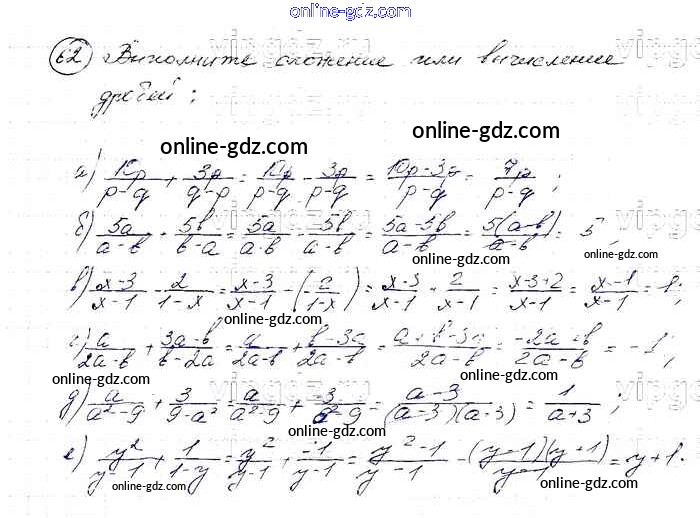 online-gdz.com
62 Выполните сложение или вычисление
дробей:
online-gdz.com online-gdz.com
а) 10p/(p-q) + 3p/(q-p) = 10p/(p-q) - 3p/(p-q) = (10p-3p)/(p-q) = 7p/(p-q);
б) 5a/(a-b) + 5b/(b-a) = 5a/(a-b) - 5b/(a-b) = (5a-5b)/(a-b) = 5(a-b)/(a-b) = 5;
online-gdz.com online-gdz.com
в) (x-3)/(x-1) - 2/(1-x) = (x-3)/(x-1) - (2/(1-x)) = (x-3)/(x-1) + 2/(x-1) = (x-3+2)/(x-1) = (x-1)/(x-1) = 1;
online-gdz.com
г) a/(2a-b) + (3a-b)/(b-2a) = a/(2a-b) + (b-3a)/(2a-b) = (a+b-3a)/(2a-b) = (-2a+b)/(2a-b) = -1;
online-gdz.com online-gdz.com
д) a/(a²-9) + 3/(9-a²) = a/(a²-9) + -3/(a²-9) = (a-3)/((a-3)(a-3)) = 1/(a+3);
online-gdz.com
е) y²/(y-1) + 1/(1-y) = y²/(y-1) + -1/(y-1) = (y²-1)/(y-1) = (y-1)(y+1)/(y-1) = y+1.
online-gdz.com online-gdz.com